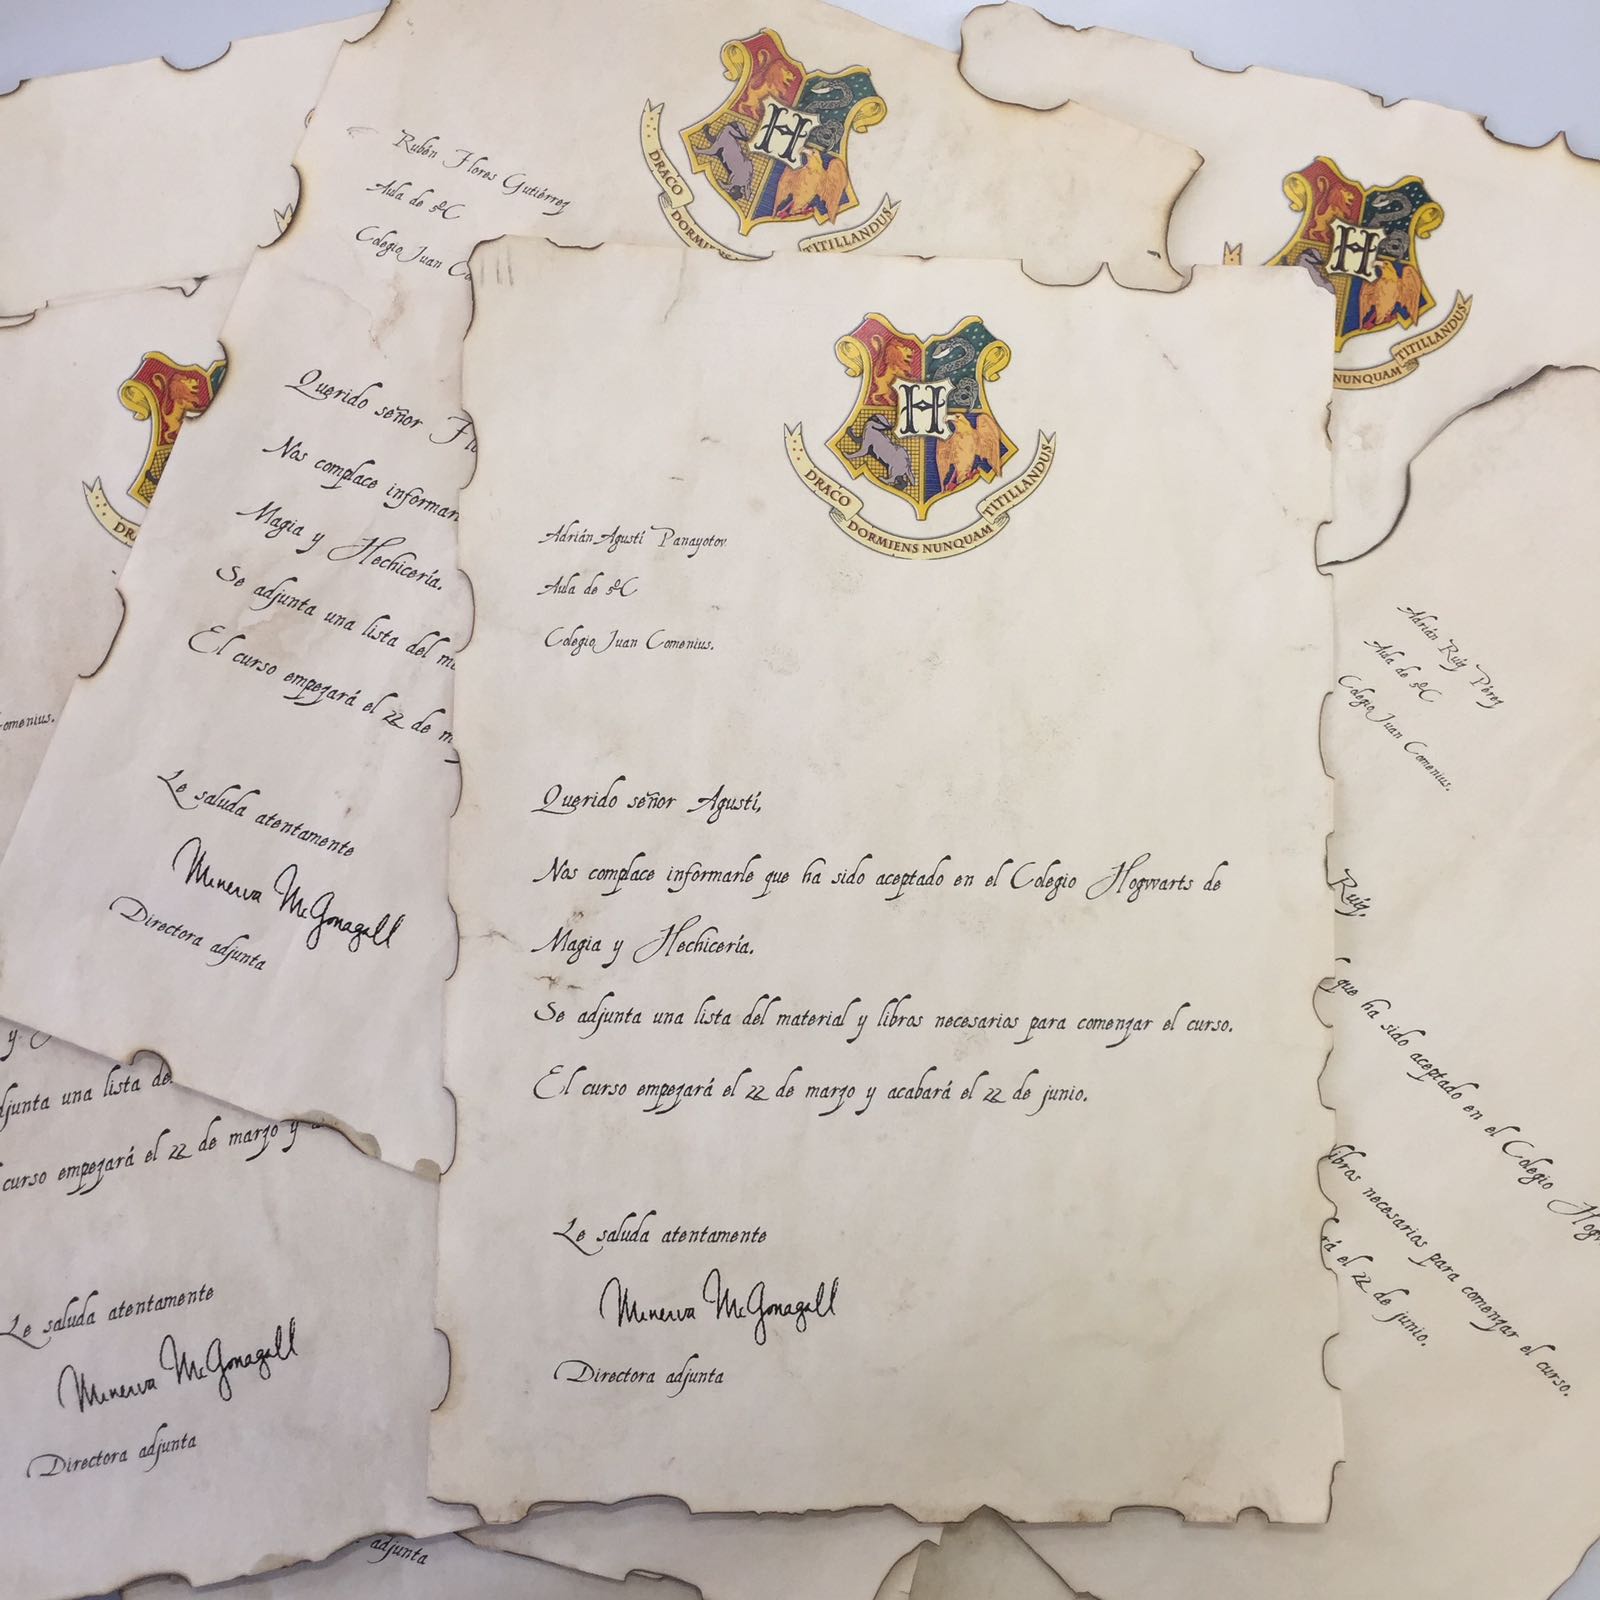 Rubén Flores Gutiérrez
Aula de 5ºC
Colegio Juan
DRACO
TITILLANDUS
Querido señor
Nos complace
Magia y Hechicería.
Se adjunta una lista del
El curso empezará el 22 de
Le saluda atentamente
Minerva McGonagall
Directora adjunta
H
NUNQUAM TITILLANDUS
H
H
DRACO DORMIENS NUNQUAM TITILLANDUS
Adrián Agustí Panayotov
Aula de 5ºC
Colegio Juan Comenius.
Querido señor Agustí,
Nos complace informarle que ha sido aceptado en el Colegio Hogwarts de
Magia y Hechicería.
Se adjunta una lista del material y libros necesarios para comenzar el curso.
El curso empezará el 22 de marzo y acabará el 22 de junio.
Le saluda atentamente
Minerva McGonagall
Directora adjunta
Adrián Ruiz Pérez
Aula de 5ºC
Colegio Juan Comenius.
Ruiz,
que ha sido aceptado en el Colegio
libros necesarios para comenzar el curso.
el 22 de junio.
y
una lista
curso empezará el 22 de marzo y
Le saluda atentamente
Minerva McGonagall
Directora adjunta
adjunta